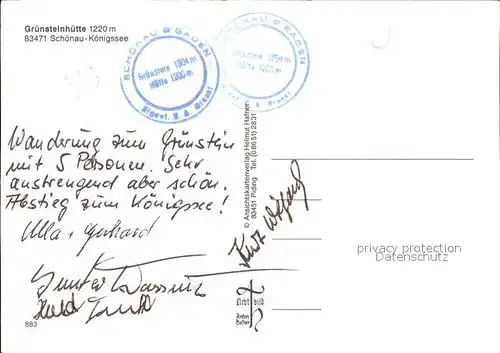 Grünsteinhütte 1220 m
83471 Schönau-Königssee
SCHÖNAU B'GADEN
Grünstein 1304 m
Hütte 1200 m
Eigent. H. A.
SCHÖNAU B'GADEN
Grünstein 1304 m
Hütte 1200 m
Wanderung zum Grünstein
mit 5 Personen. Sehr
anstrengend aber schön.
Abstieg zum Königssee!
Ulla + Gerhard
Gunter
883
© Ansichtskartenverlag Helmut Hafner
83451 Piding · Tel. (08651) 2831
Kurz Wolfgang
Licht bild
privacy protection
Datenschutz